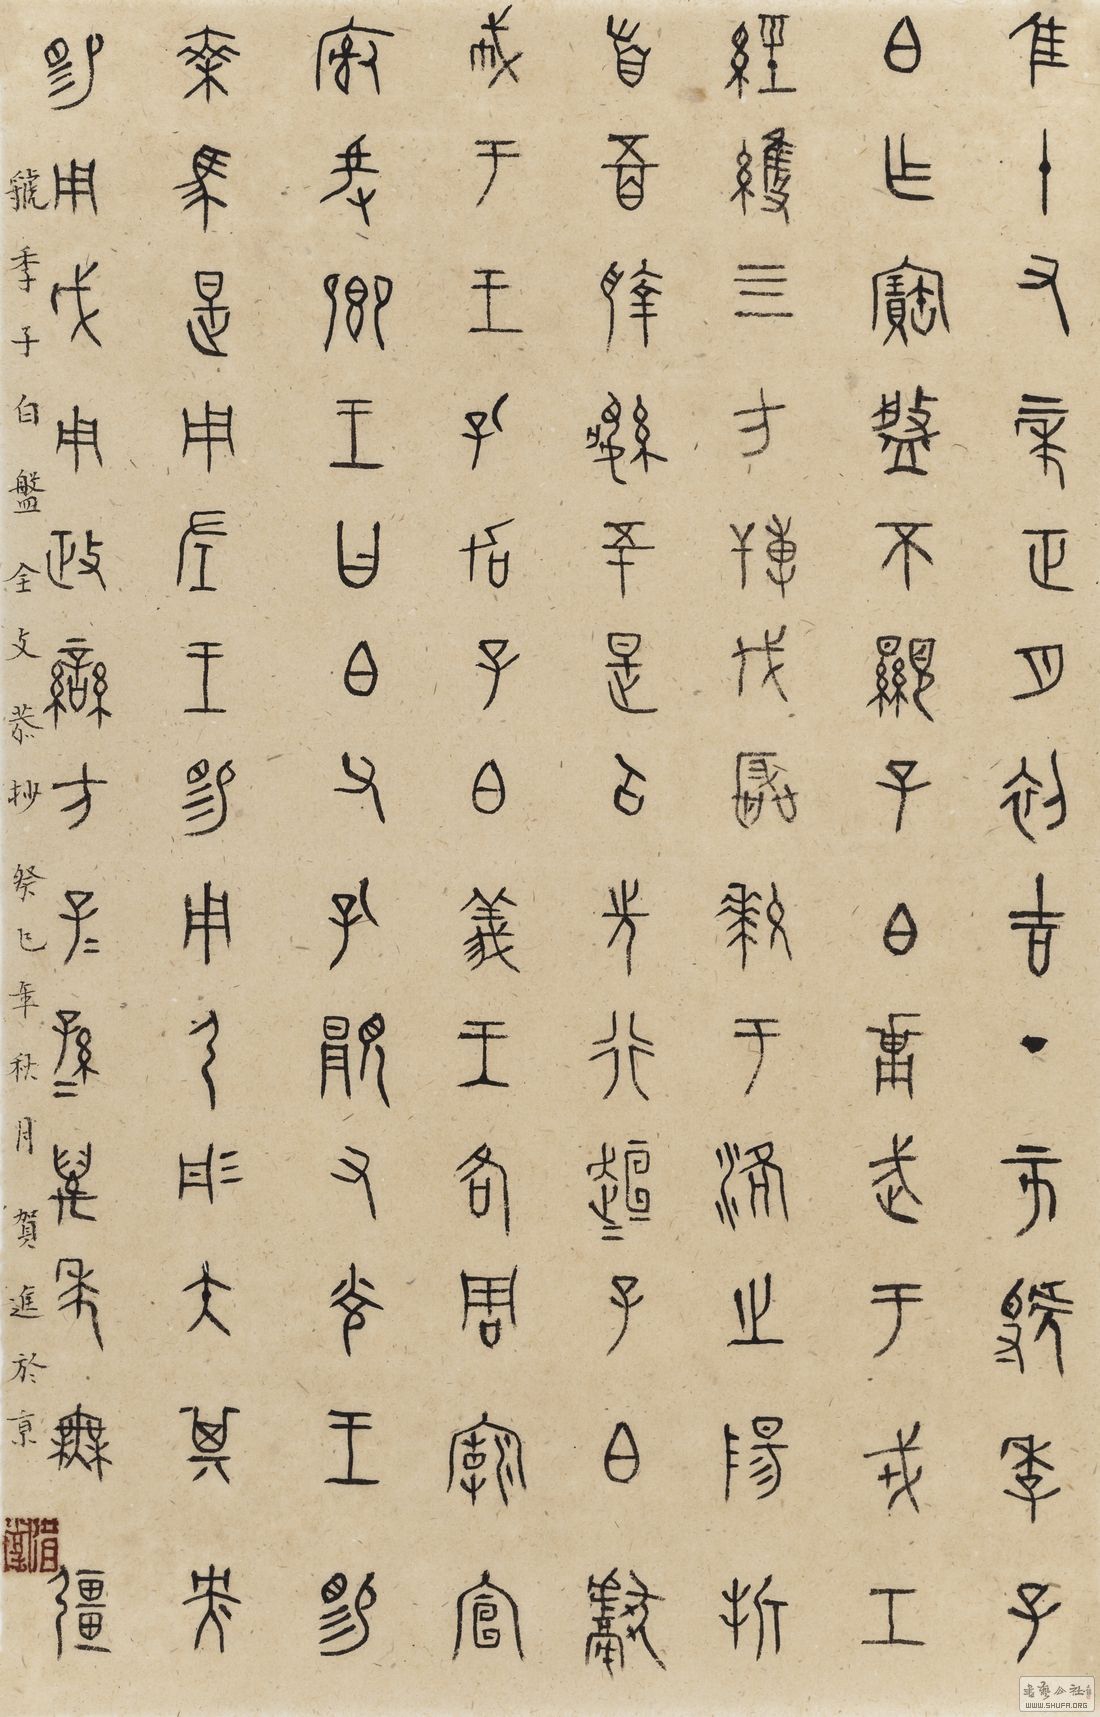 隹十又二年正月初吉丁亥虢季子
白乍寶盤不顯子白𤕌武于戎工
經維四方搏伐玁狁于洛之陽折
首五百執訊五十是以先行桓=子白獻
馘于王孔加子白義王各周廟宣
榭爰鄉王曰白父孔顯又光王賜
乘馬是用左王賜用弓彤矢其央
賜用戉用政蠻方子=孫=萬年無疆
虢季子白盤全文恭抄 癸巳年秋月賀進於京
WWW.SHUFA.ORG